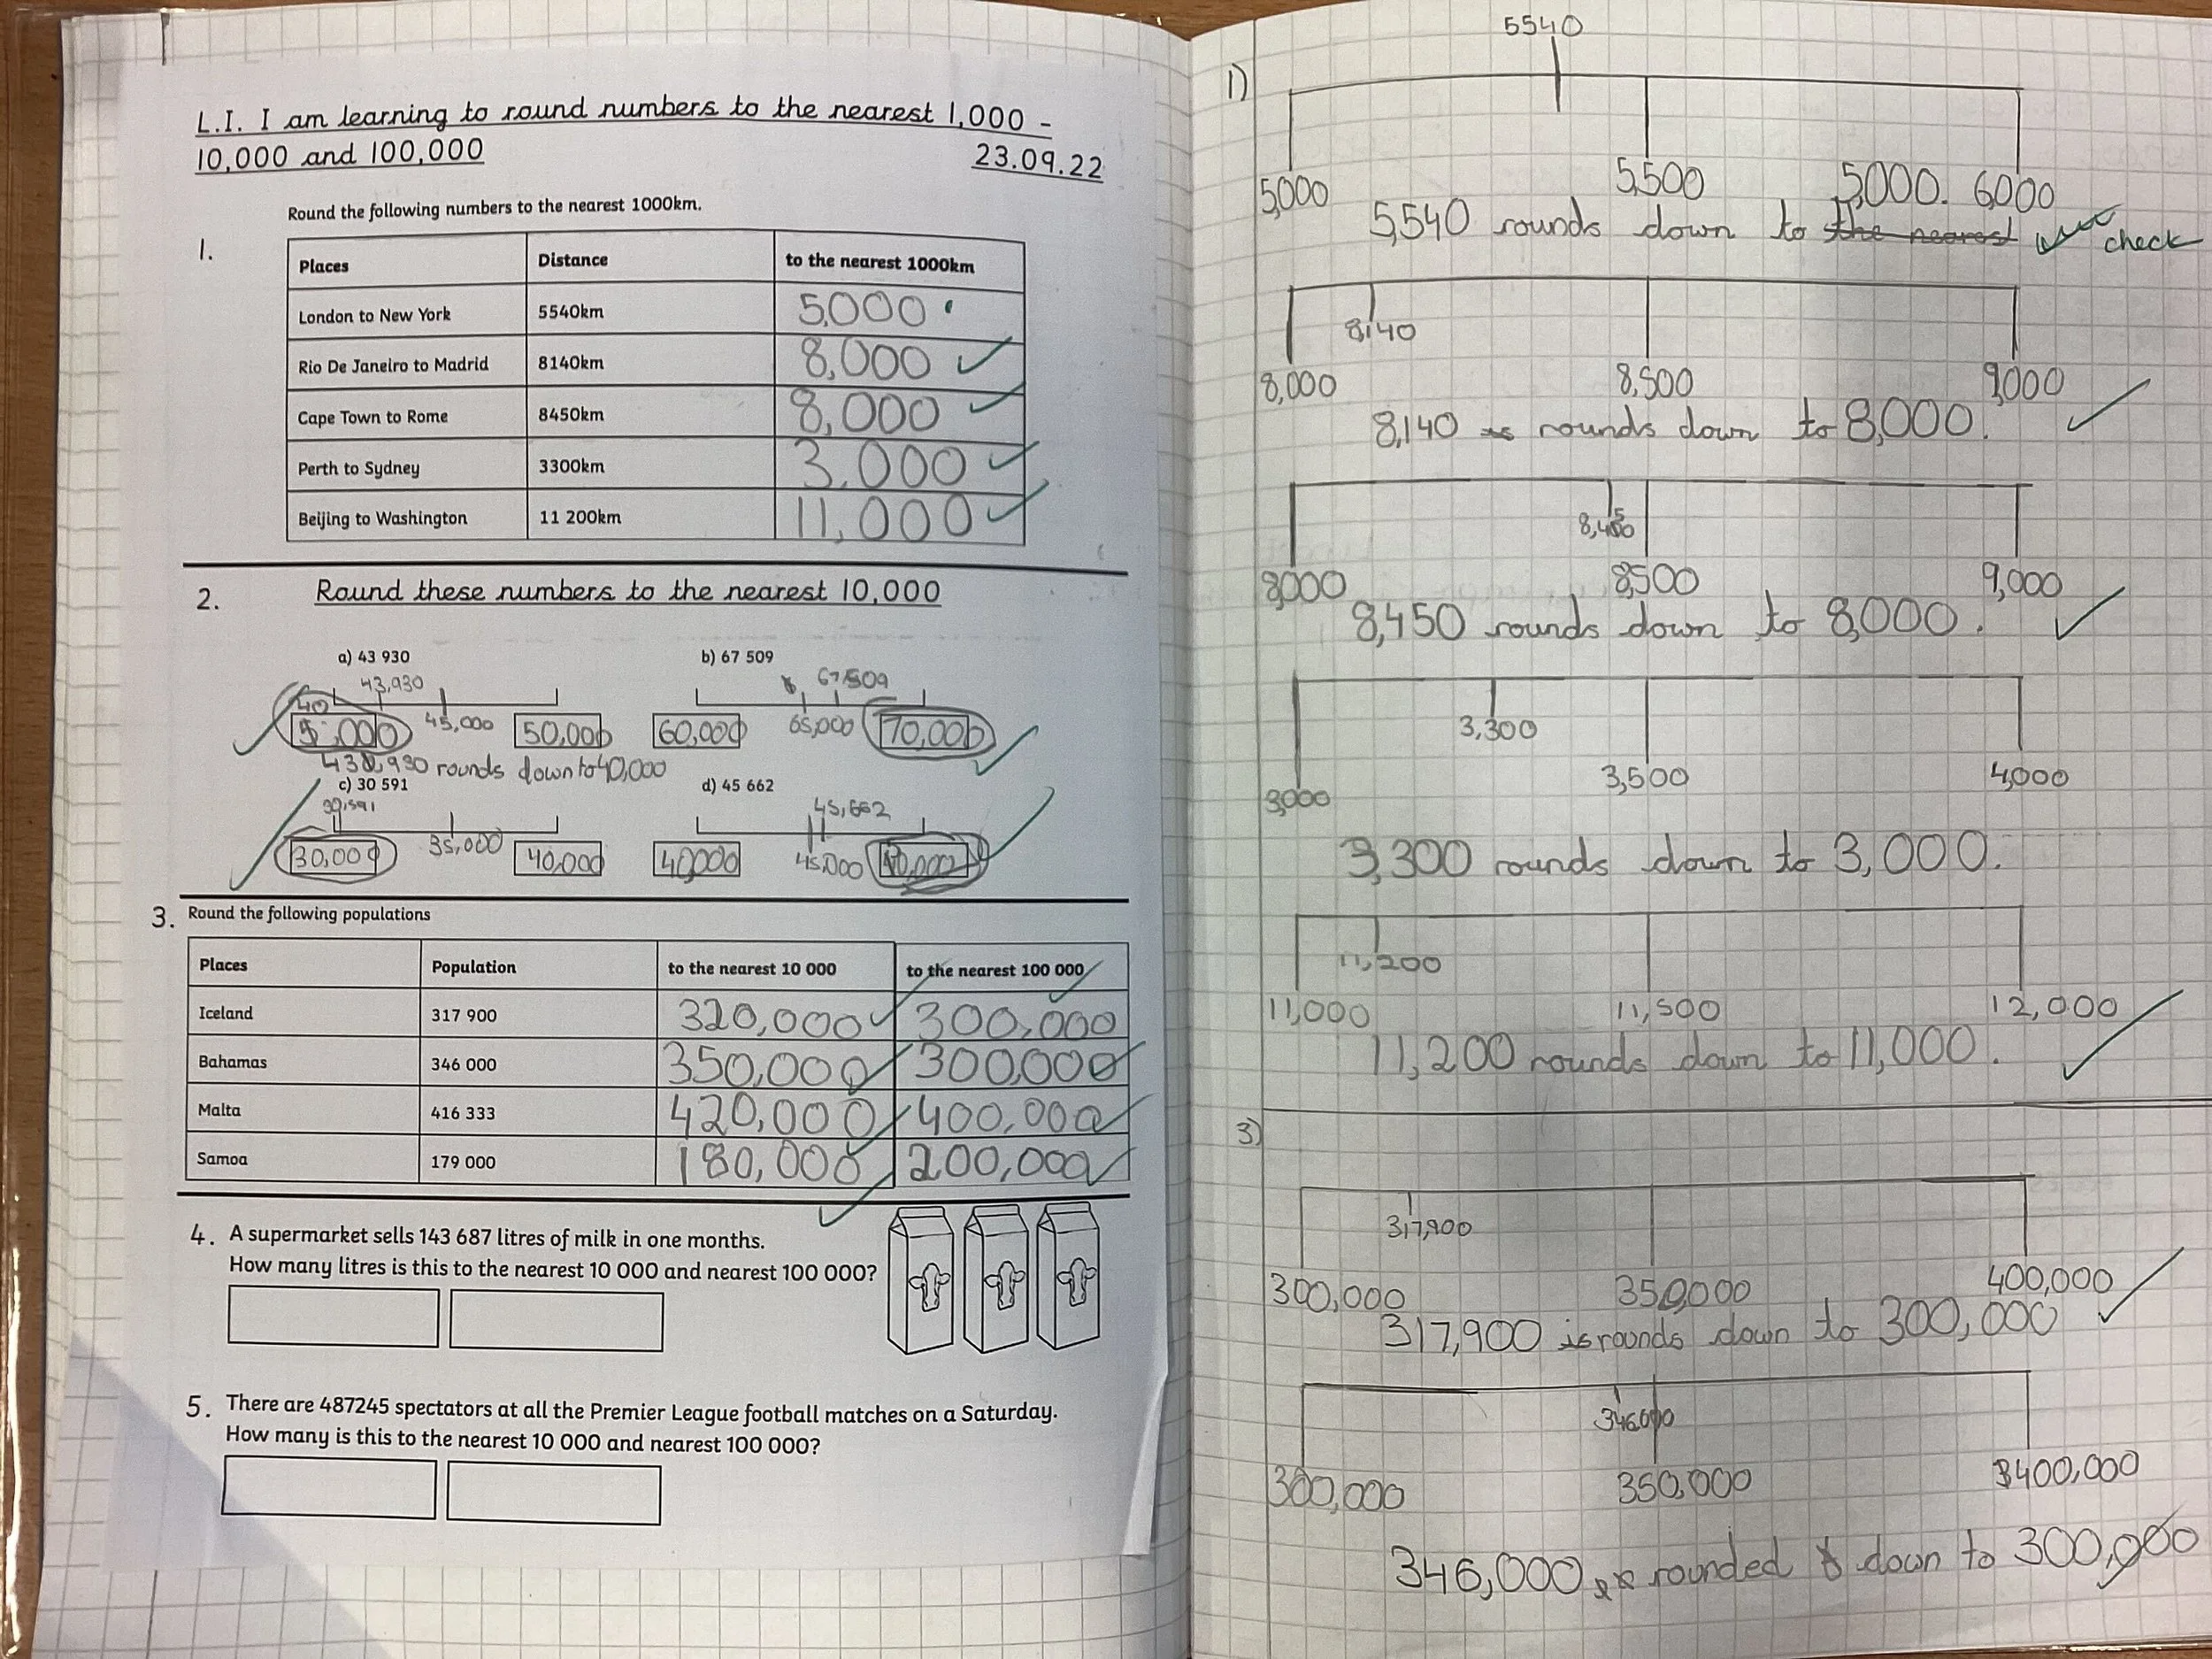 L.I. I am learning to round numbers to the nearest 1,000 -
10,000 and 100,000 23.09.22
Round the following numbers to the nearest 1000km.
1.
Places Distance to the nearest 1000km
London to New York 5540km 5,000
Rio De Janeiro to Madrid 8140km 8,000
Cape Town to Rome 8450km 8,000
Perth to Sydney 3300km 3,000
Beijing to Washington 11 200km 11,000
2. Round these numbers to the nearest 10,000
a) 43 930 b) 67 509
43,930 67,509
40,000 45,000 50,000 60,000 65,000 70,000
43,930 rounds down to 40,000
c) 30 591 d) 45 662
30,591 45,662
30,000 35,000 40,000 40,000 45,000
3. Round the following populations
Places Population to the nearest 10 000 to the nearest 100 000
Iceland 317 900 320,000 300,000
Bahamas 346 000 350,000 300,000
Malta 416 333 420,000 400,000
Samoa 179 000 180,000 200,000
4. A supermarket sells 143 687 litres of milk in one months.
How many litres is this to the nearest 10 000 and nearest 100 000?
5. There are 487245 spectators at all the Premier League football matches on a Saturday.
How many is this to the nearest 10 000 and nearest 100 000?
5540
1)
5,000 5,500 5,000. 6,000
5,540 rounds down to the nearest check
8,140
8,000 8,500 9,000
8,140 is rounds down to 8,000.
8,450
8,000 8,500 9,000
8,450 rounds down to 8,000.
3,300
3,000 3,500 4,000
3,300 rounds down to 3,000.
11,200
11,000 11,500 12,000
11,200 rounds down to 11,000.
3)
317,900
300,000 350,000 400,000
317,900 is rounds down to 300,000
346,000
300,000 350,000 400,000
346,000 rounded down to 300,000